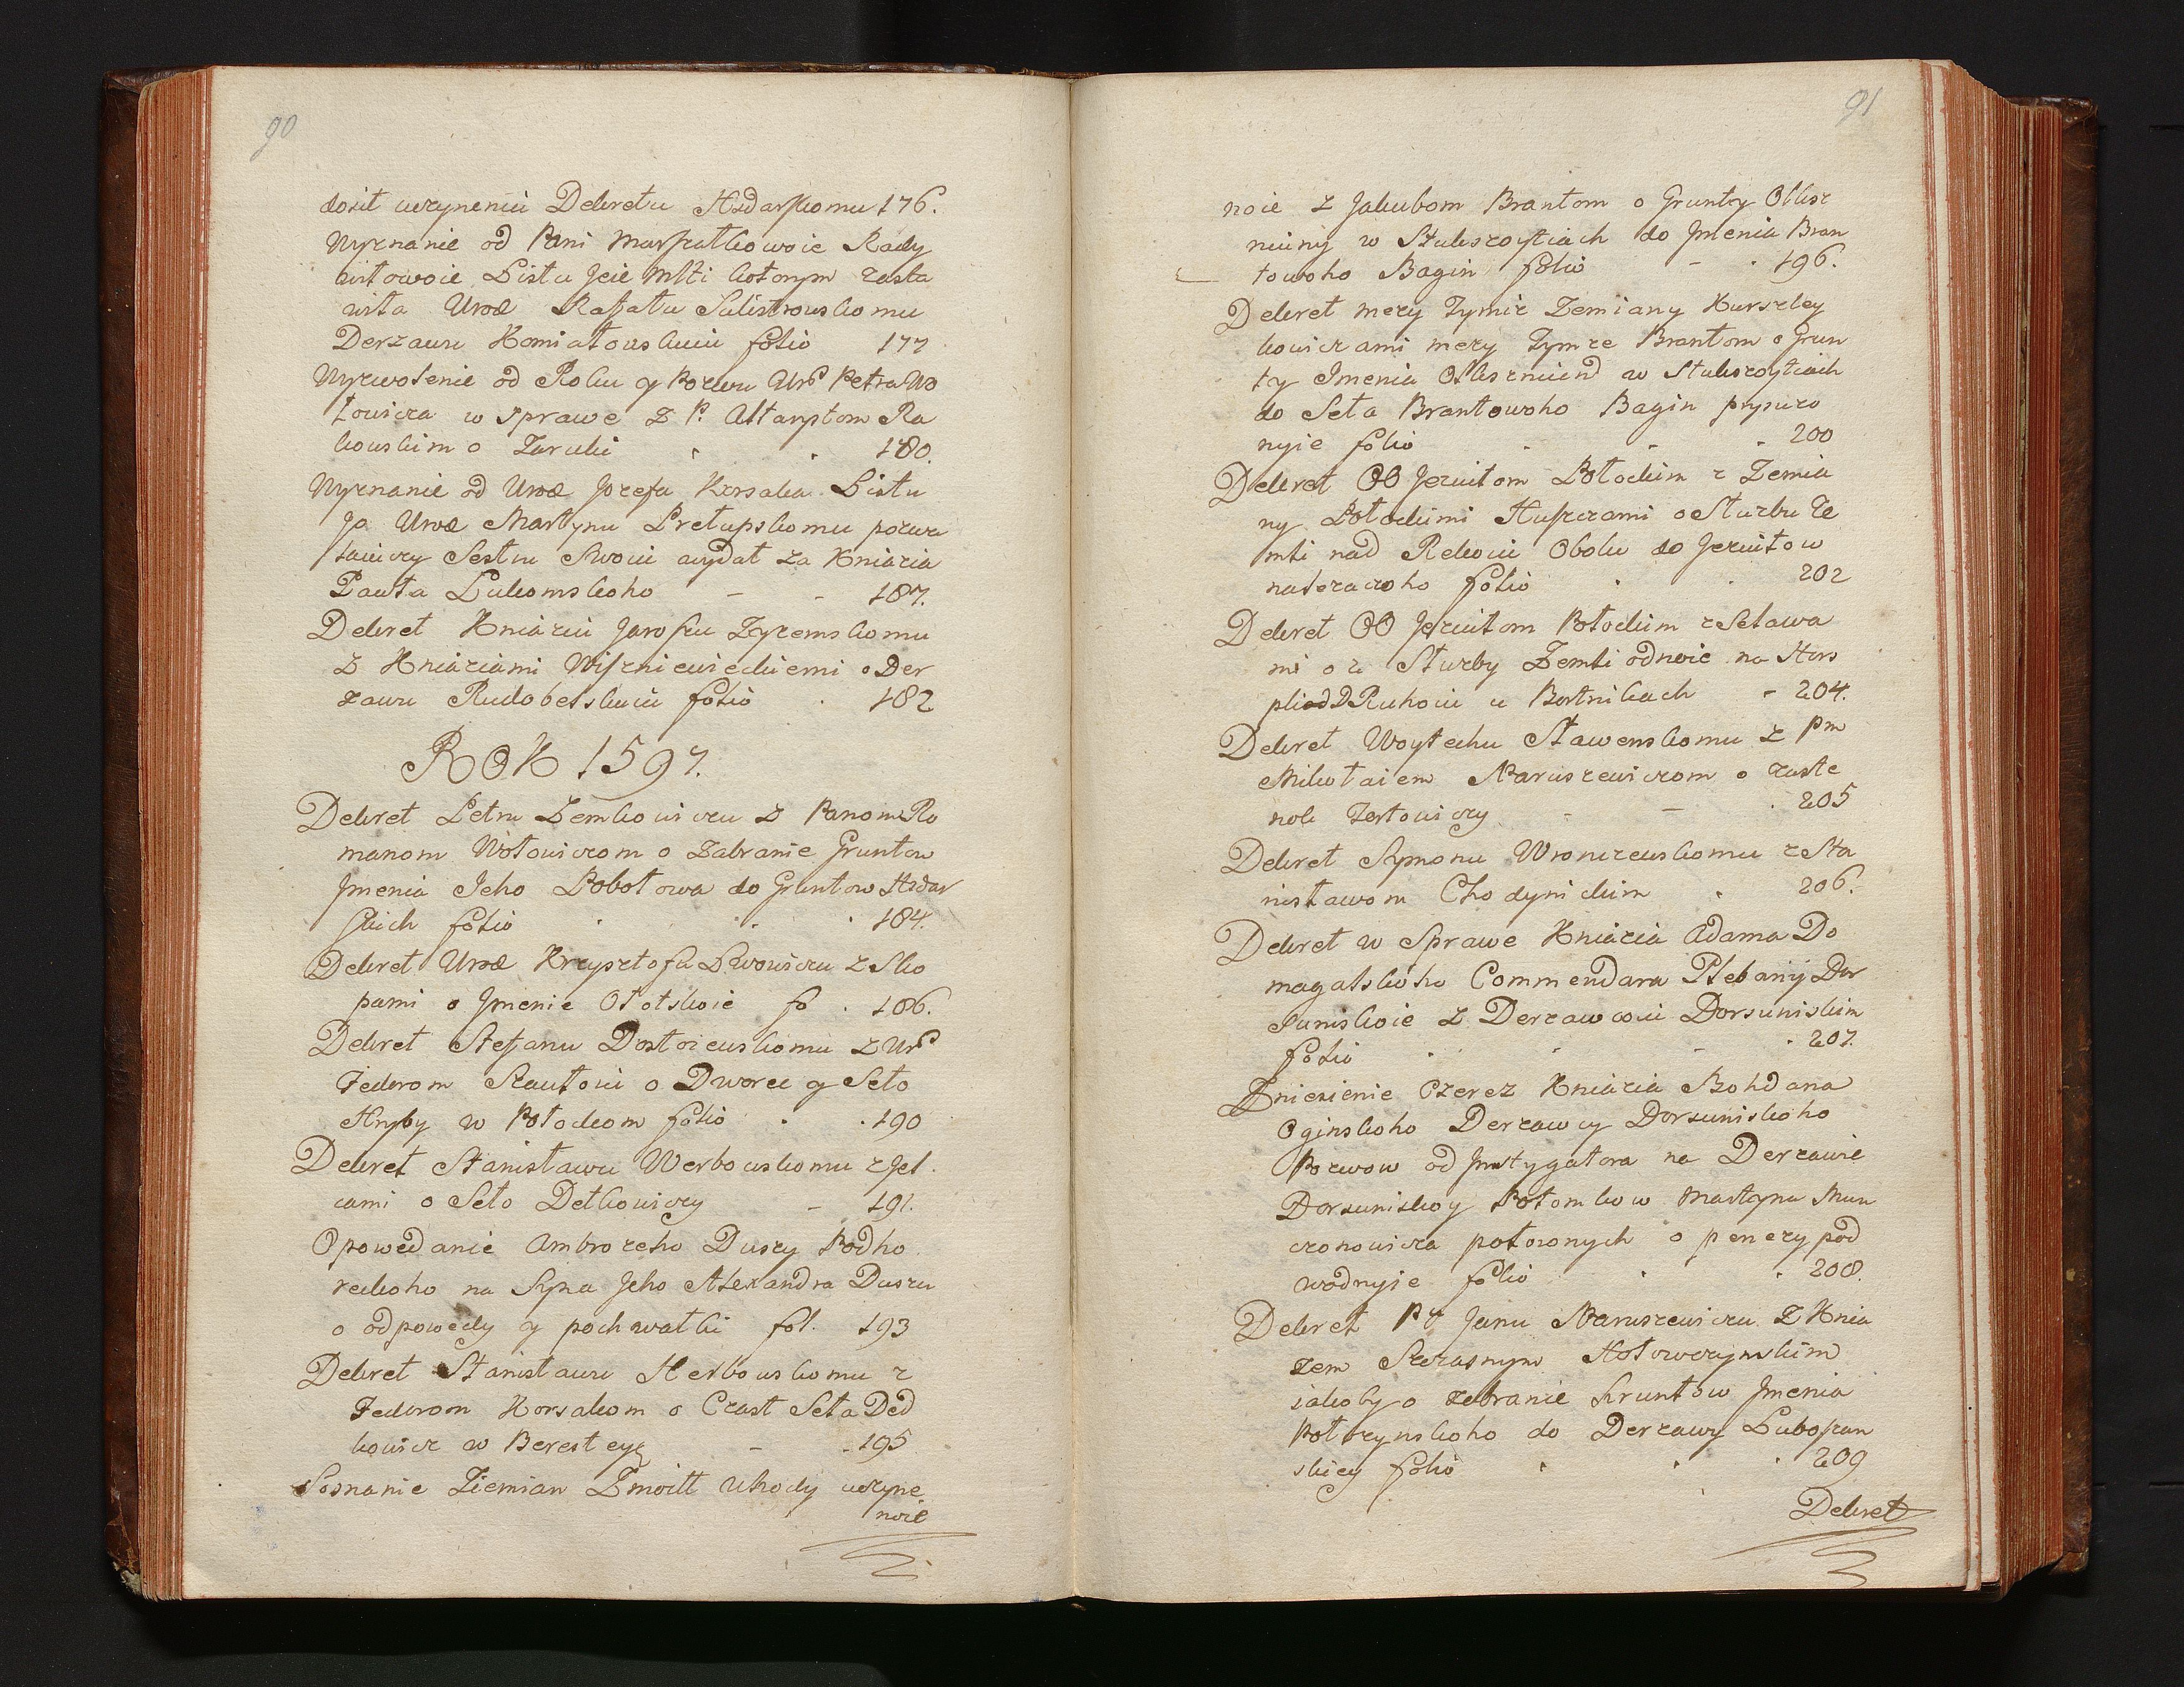 90
dosit uczyneniu Dekretu Hsdarskomu 176.
Wyznanie od Pani Marszałkowoie Rady
wiłowoie Listu Jeie Młti kotorym zasta
wiła Uroć Rafału Sulistrowskomu
Derzawu Komiatowskuiu folio 177
Wyzwolenie od Roku y Pozwu Urod Petra Wo
łowicza w sprawe z P. Altaryptom Ra
kowskim o Zaruki 180.
Wyznanie od Uroć Jozefa Korsaka Listu
Ja Uroć Martynu Pretupskomu pozwa
lauczy Sestru Swoiu wydat za Kniazia
Pawła Lukomskoho - - 187.
Dekret Kniaziu Jarofiu Zyzemskomu
z Kniaziami Wiszniewieckiemi o Der
zawu Rudobelskuiu folio 182
ROK 1597.
Dekret Petru Zemkowiczu z Panom Ro
manom Wołowiczom o Zabranie Gruntow
Jmenia Jeho Bobołowa do Gruntow Hsdar
skich folio 184.
Dekret Uroć Krzysztofu Lwowiczu z Sko
pami o Jmenie Ołotskoie fo. 186.
Dekret Stefanu Dostoiewskomu z Urod
Federom Szautoiu o Dworec y Seło
Hryby w Połockom folio 190
Dekret Stanisławu Werbowskomu z Jel
cami o Seło Detkowiczy - 191.
Opowedanie Ambrozeho Duszy Podho
reckoho na Syna Jeho Alexandra Duszu
o odpowedy y pochwałki fol. 193
Dekret Stanisławu Herbowskomu z
Federom Korsakom o Czast Seła Ded
kowicz w Beresteyę - 195
Soznanie Ziemian Zmoitt Uhody uczyne
noie
91
noie z Jakubom Brantom o Grunty Oblisz
nuiny w Stukszoytiach do Jmenia Bran
towoho Bagin folio - 196.
Dekret mezy Tymiz Zemiany Kurszley
kowiczami mezy Tymze Brantom o Grun
ty Jmenia w Stukszoytiach
do Seła Brantowoho Bagin pryszco
nyie folio 200
Dekret OO Jezuitom Połockim z Zemia
ny Połockimi Huszczami o Słuzbu Ze
mli nad Rekoiu Obolu do Jezuitow
nalezaczoho folio 202
Dekret OO Jezuitom Połockim z Seława
mi o z Słuzby Zemli odnoie na Hors
pli od DRuhoiu u Bortnikach - 204.
Dekret Woytechu Sławenskomu z Pm
Mikołaiem Naruszewiczom o zaste
nok Zertowiczy - 205
Dekret Symonu Wronczewskomu z Sta
nisławom Chodynickim 206.
Dekret w Sprawe Kniazia Adama Do
magatskoho Commendara Plebanÿ Dor
suniskoie z Derzawcoiu Dorsuniskim
folio 207.
Zniesienie Czerez Kniazia Bohdana
Oginskoho Derzawcy Dorsuniskoho
Pozwow od Jnstygatora na Derzawie
Dorsuniskoy Potomkow Martyna Mun
czonowicza połozonych o penezy pod
wodnyie folio 208.
Dekret Pt Janu Naruszewiczu z Knia
zem Szczasnym Hołowczynskim
iakoby o zebranie Hruntow Jmenia
Połtzynskoho do Derzawy Luboszan
skiey folio 209
Dekret